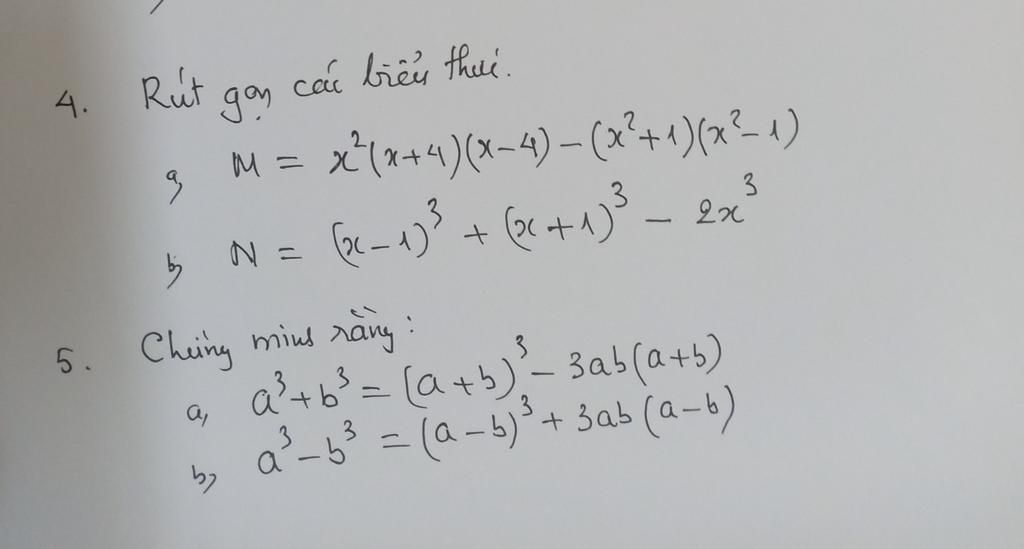 4. Rút gọn các biểu thức.
a, M = x²(x+4)(x−4) − (x²+1)(x²−1)
b, N = (x−1)³ + (x+1)³ − 2x³
5. Chứng minh rằng:
a, a³+b³ = (a+b)³ − 3ab(a+b)
b, a³−b³ = (a−b)³ + 3ab(a−b)